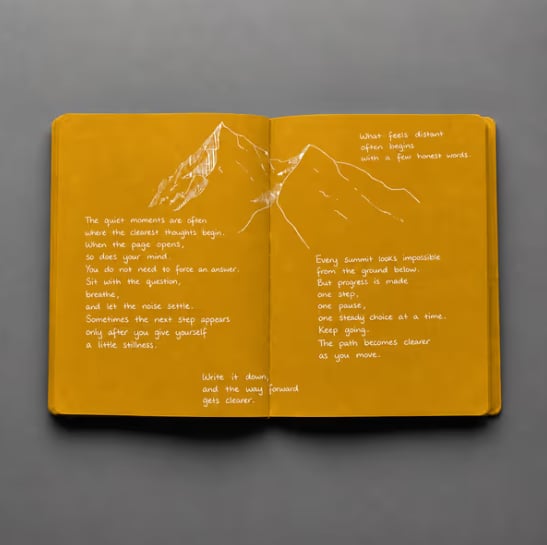 The quiet moments are often
where the clearest thoughts begin.
When the page opens,
so does your mind.
You do not need to force an answer.
Sit with the question,
breathe,
and let the noise settle.
Sometimes the next step appears
only after you give yourself
a little stillness.
Write it down,
and the way forward
gets clearer.
What feels distant
often begins
with a few honest words.
Every summit looks impossible
from the ground below.
But progress is made
one step,
one pause,
one steady choice at a time.
Keep going.
The path becomes clearer
as you move.